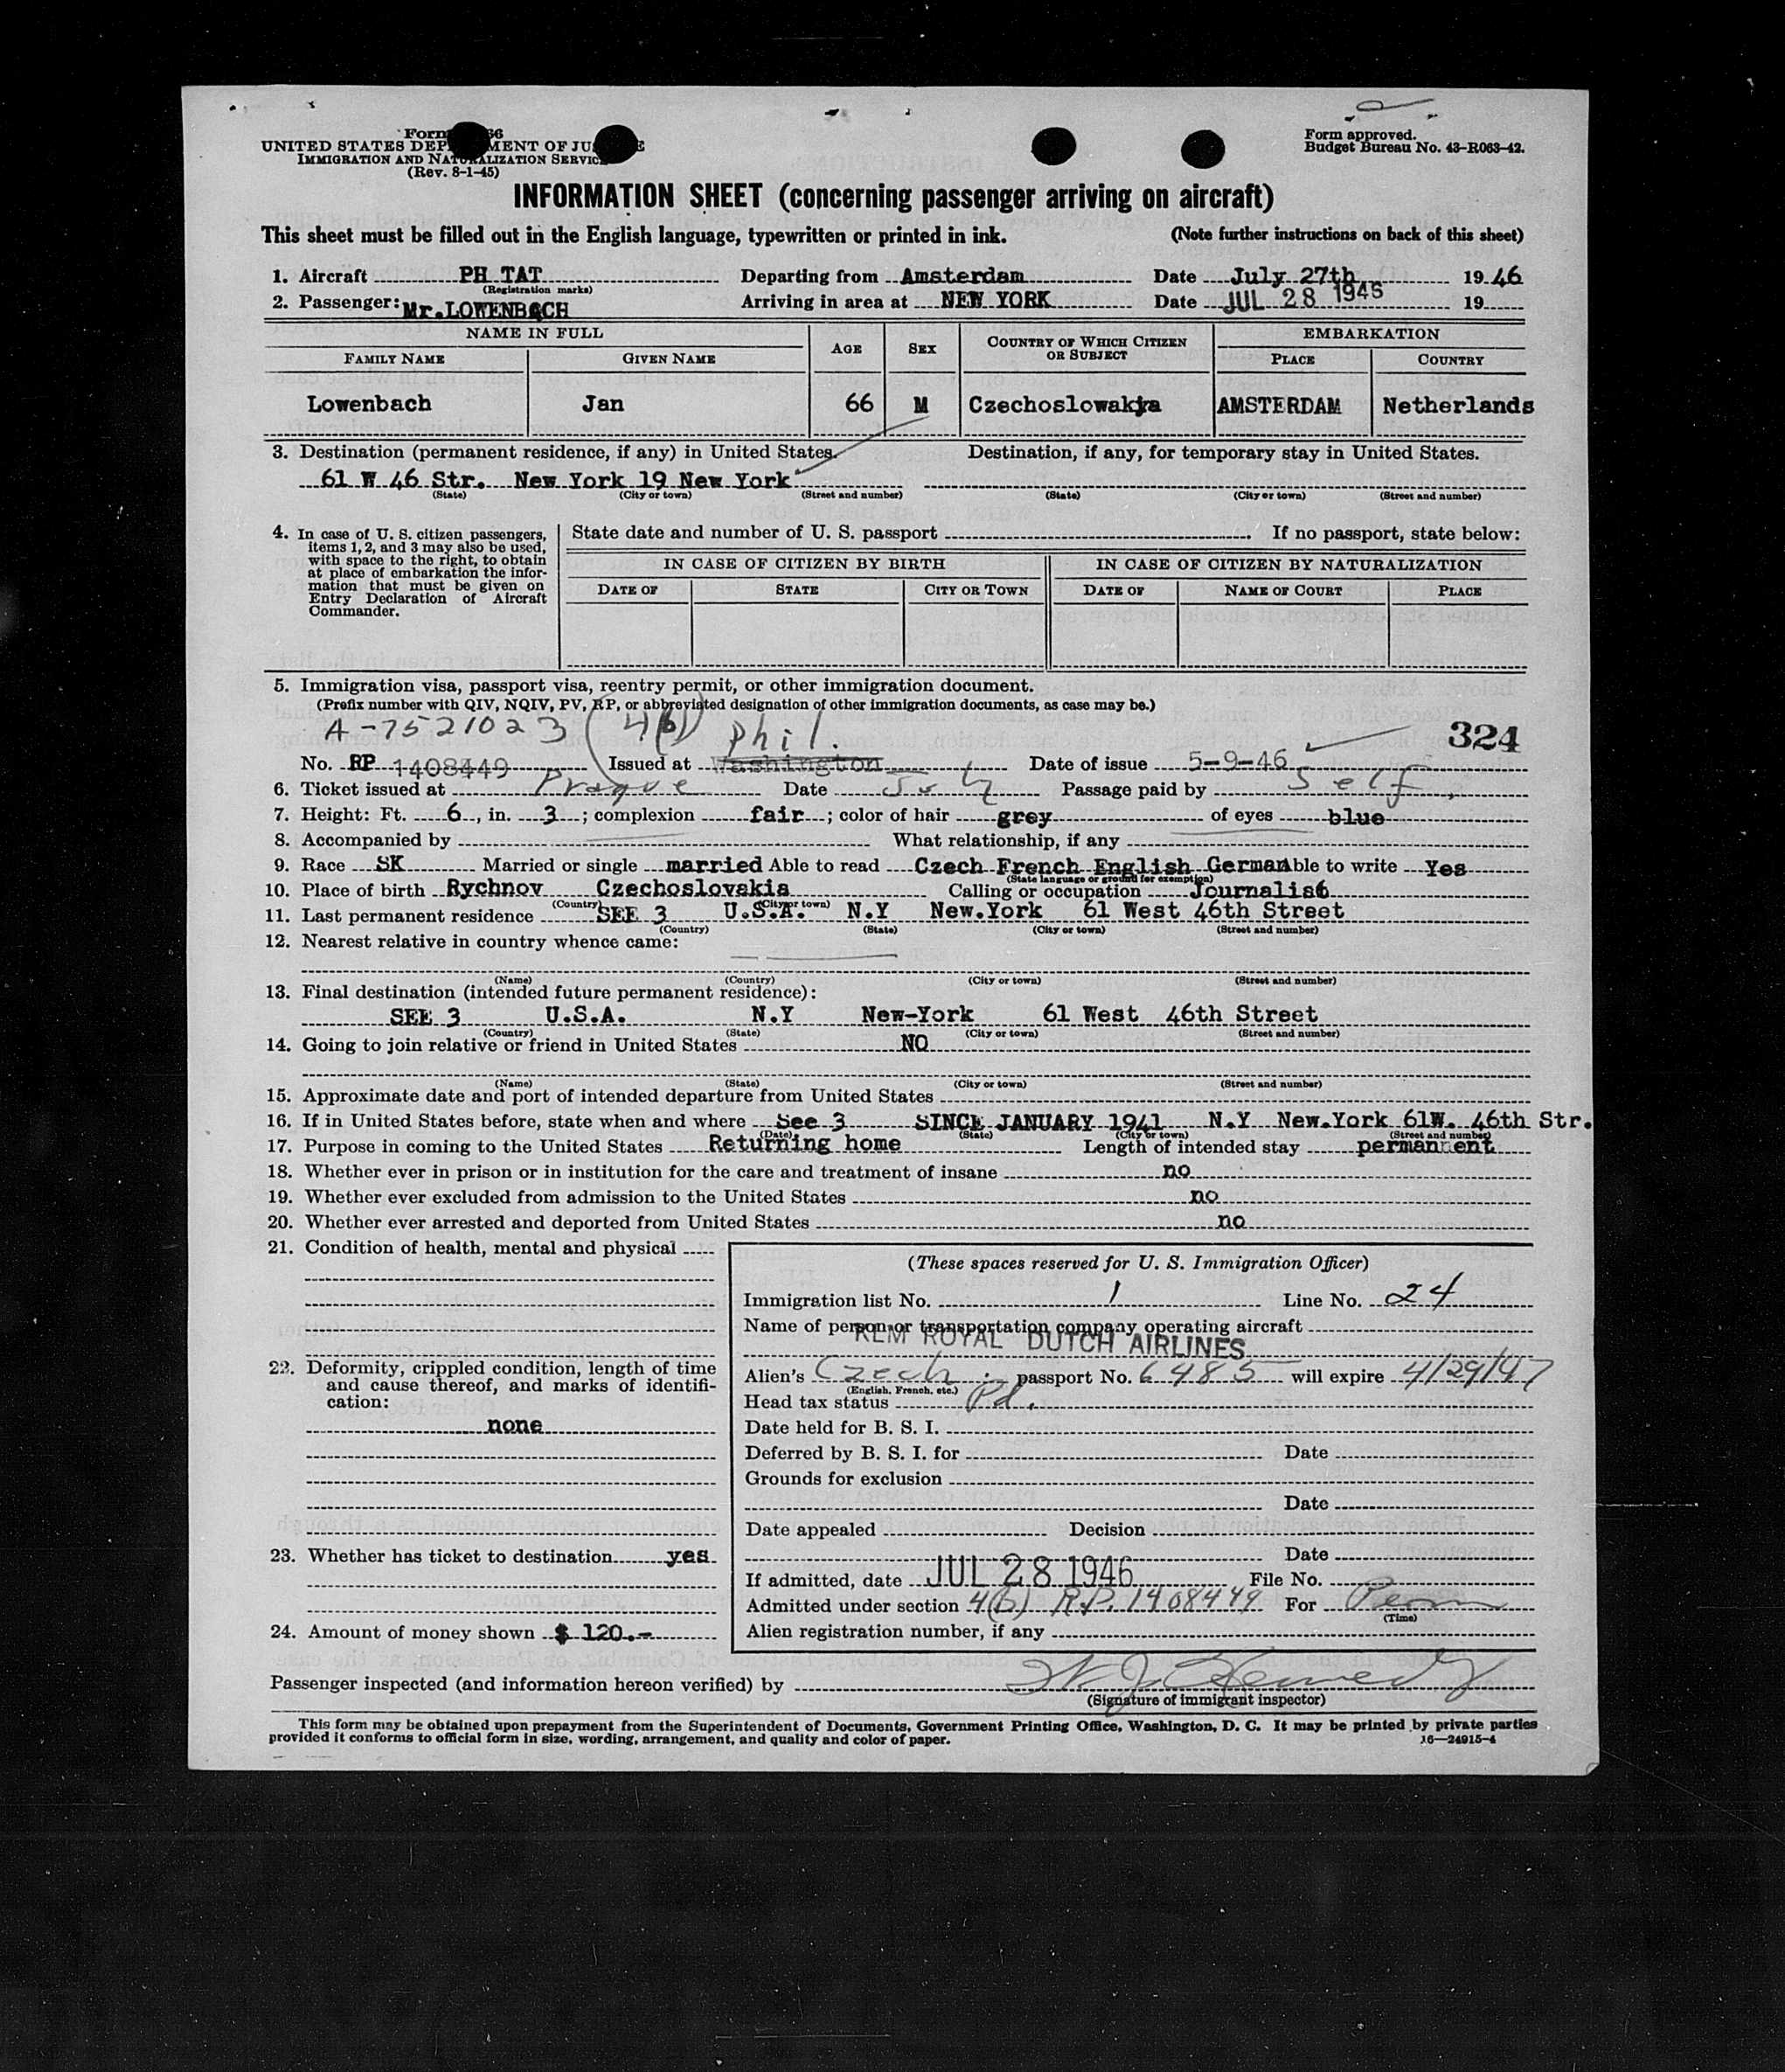 Form 66
UNITED STATES DEP MENT OF JU E
IMMIGRATION AND NATURALIZATION SERVICE
(Rev. 8-1-45)
Form approved.
Budget Bureau No. 43-R063-42.
INFORMATION SHEET (concerning passenger arriving on aircraft)
This sheet must be filled out in the English language, typewritten or printed in ink. (Note further instructions on back of this sheet)
1. Aircraft PH TAT Departing from Amsterdam Date July 27th 19 46
(Registration marks)
2. Passenger: Mr.LOWENBACH Arriving in area at NEW YORK Date JUL 28 1946 19
NAME IN FULL AGE SEX COUNTRY OF WHICH CITIZEN OR SUBJECT EMBARKATION
FAMILY NAME GIVEN NAME PLACE COUNTRY
Lowenbach Jan 66 M Czechoslowakia AMSTERDAM Netherlands
3. Destination (permanent residence, if any) in United States. Destination, if any, for temporary stay in United States.
61 W 46 Str. New York 19 New York
(State) (City or town) (Street and number) (State) (City or town) (Street and number)
4. In case of U. S. citizen passengers, items 1, 2, and 3 may also be used, with space to the right, to obtain at place of embarkation the information that must be given on Entry Declaration of Aircraft Commander.
State date and number of U. S. passport . If no passport, state below:
IN CASE OF CITIZEN BY BIRTH IN CASE OF CITIZEN BY NATURALIZATION
DATE OF STATE CITY OR TOWN DATE OF NAME OF COURT PLACE
5. Immigration visa, passport visa, reentry permit, or other immigration document.
(Prefix number with QIV, NQIV, PV, RP, or abbreviated designation of other immigration documents, as case may be.)
A-7521023 4(b) Phil. 324
No. RP 1408449 Issued at Washington Date of issue 5-9-46
6. Ticket issued at Prague Date July Passage paid by Self
7. Height: Ft. 6, in. 3; complexion fair; color of hair grey of eyes blue
8. Accompanied by What relationship, if any
9. Race SK Married or single married Able to read Czech French English German Able to write Yes
(State language or ground for exemption)
10. Place of birth Rychnov Czechoslovakia Calling or occupation Journalist
(Country) (City or town)
11. Last permanent residence SEE 3 U.S.A. N.Y New.York 61 West 46th Street
(Country) (State) (City or town) (Street and number)
12. Nearest relative in country whence came:
(Name) (Country) (City or town) (Street and number)
13. Final destination (intended future permanent residence):
SEE 3 U.S.A. N.Y New-York 61 West 46th Street
(Country) (State) (City or town) (Street and number)
14. Going to join relative or friend in United States NO
(Name) (State) (City or town) (Street and number)
15. Approximate date and port of intended departure from United States
16. If in United States before, state when and where See 3 SINCE JANUARY 1941 N.Y New.York 61W. 46th Str.
(Date) (State) (City or town) (Street and number)
17. Purpose in coming to the United States Returning home Length of intended stay permanent
18. Whether ever in prison or in institution for the care and treatment of insane no
19. Whether ever excluded from admission to the United States no
20. Whether ever arrested and deported from United States no
21. Condition of health, mental and physical
22. Deformity, crippled condition, length of time and cause thereof, and marks of identification:
none
23. Whether has ticket to destination yes
24. Amount of money shown $ 120.-
(These spaces reserved for U. S. Immigration Officer)
Immigration list No. 1 Line No. 24
Name of person or transportation company operating aircraft
KLM ROYAL DUTCH AIRLINES
Alien's Czech passport No. 6485 will expire 4/29/47
(English, French, etc.)
Head tax status Pd.
Date held for B. S. I.
Deferred by B. S. I. for Date
Grounds for exclusion
Date
Date appealed Decision
Date
If admitted, date JUL 28 1946 File No.
Admitted under section 4(b) R.P. 1408449 For Perm
(Time)
Alien registration number, if any
Passenger inspected (and information hereon verified) by W J Kennedy
(Signature of immigrant inspector)
This form may be obtained upon prepayment from the Superintendent of Documents, Government Printing Office, Washington, D. C. It may be printed by private parties
provided it conforms to official form in size, wording, arrangement, and quality and color of paper. 16—24915-4